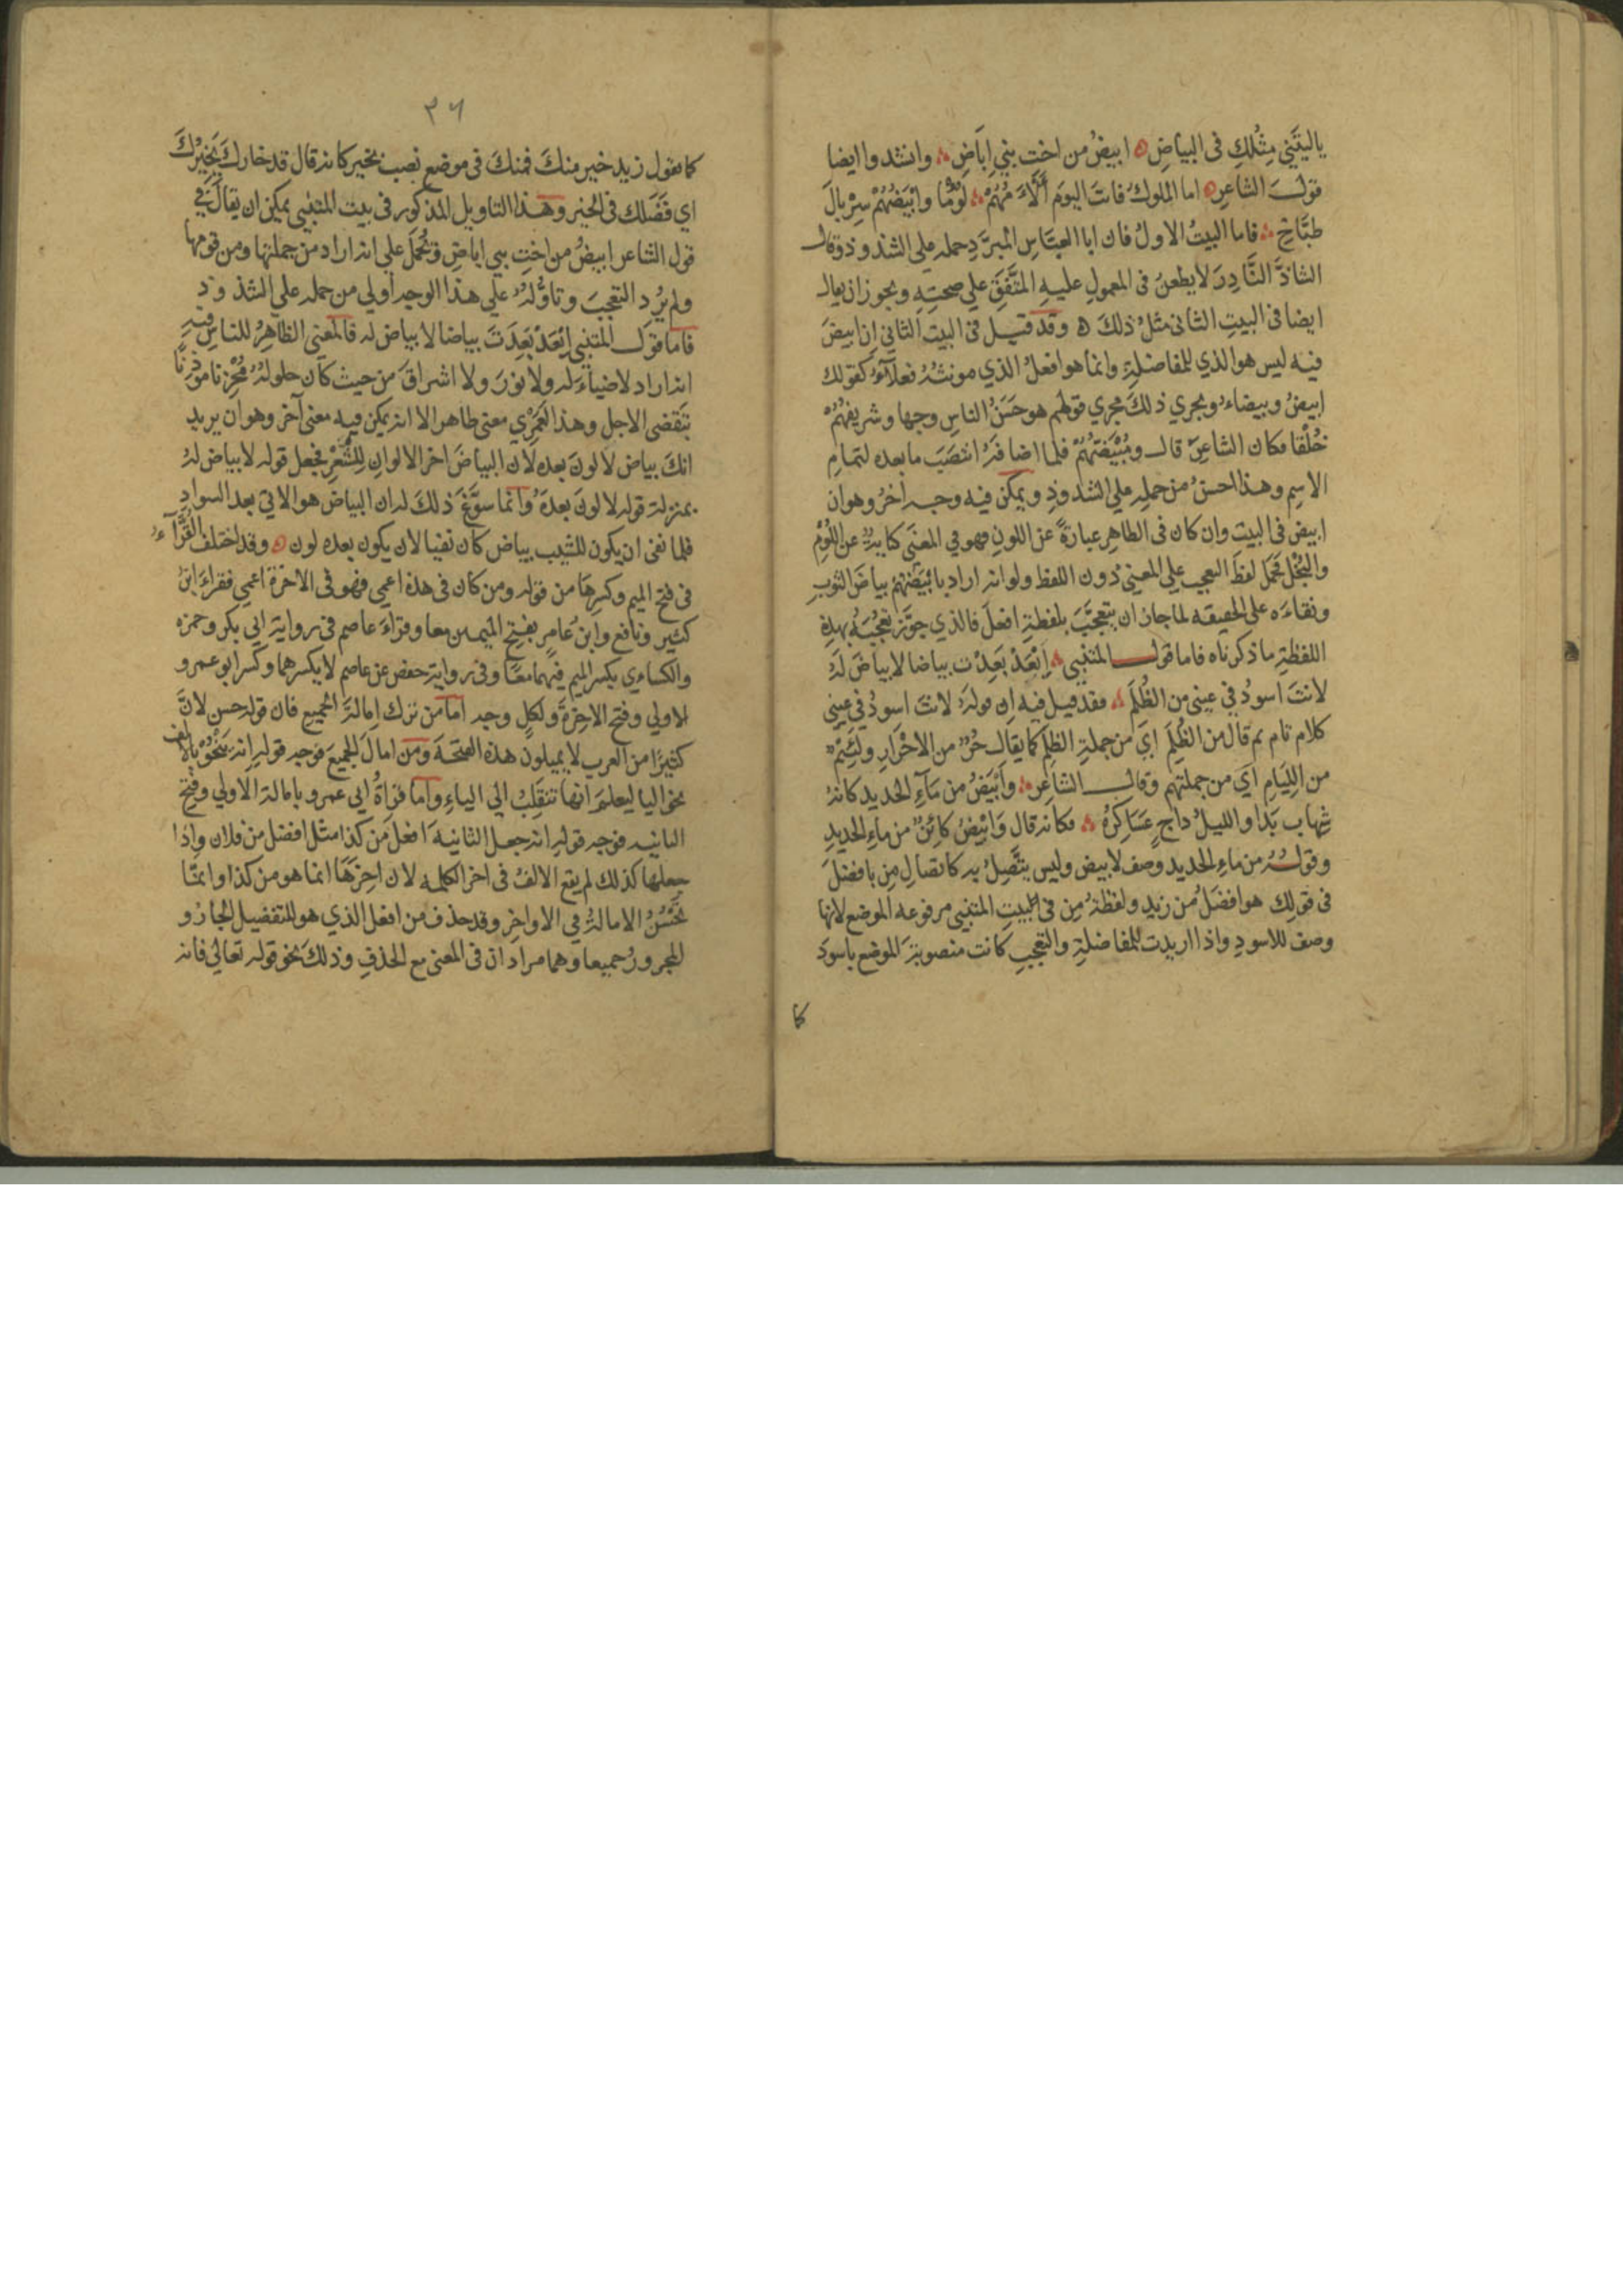 ياليتَني مِثْلكِ فى البياضِ ابيضُ من اختِ بني اِبَاضِ وانشدوا ايضا
قولَ الشاعرِ اما الملوكُ فانتَ اليومَ أَلْأَمُهُمْ لُوْمًا وابْيَضُهُمْ سِرْبالَ
طبَّاخِ فاما البيتُ الاولُ فان ابا العبَّاسِ المبرَّدِ حمله علي الشذوذ وقال
الشاذَّ النَّادِرَ لا يطعنُ فى المعمولِ عليهِ المتَّفَقِ علي صحتِهِ ويجوز ان يقال
ايضا فى البيتِ الثانى مثلُ ذلكَ ه وقد قيل فى البيت الثاني ان ابيضَ
فيه ليس هو الذي للمفاضلةِ وانما هو افعلُ الذي مونثُهُ فعلآءُ كقولك
ابيضُ وبيضاءُ ويجري ذلكَ مجري قولهم هو حَسَنُ الناسِ وجها وشريفهُمْ
خُلْقا فكان الشاعِرَ قال ومُبْيَضّهُمْ فلما اضافَهُ انتصَبَ ما بعده لتمامِ
الاسِمِ وهذا احسنُ من حملِهِ علي الشذوذِ ويمكن فيه وجه أخرُ وهو ان
ابيض فى البيت وان كان فى الظاهِرِ عبارةً عن اللونِ فهو في المعنَي كنايةٌ عن اللُؤمِ
والبُخْلِ فحملَ لفظَ التعجب علي المعنيْ دون اللفظ ولو انه اراد بابْيَضُهُمْ بياضَ الثوبِ
ونقاءَه على الحقيقه لما جاز ان يتعجَّبَ بلفظةِ افعلَ فالذي جوَّز تعجُّبَهُ بهذهِ
اللفظةِ ما ذكرناه فاما قول المتنبي اِبْعَدْ بَعِدْت بياضا لا بياضَ لَهُ
لانتَ اسودُ في عيني من الظُلَمِ فقد قيل فيه ان قولهُ لانتَ اسودُ في عيني
كلام تام ثم قال من الظُلَمِ ايْ من جملةِ الظلمِ كما يقال حُرٌّ من الاحْرَارِ ولَئِيْمٌ
من اللِيَامِ اي من جملتهم وقال الشاعِرِ وأَبْيَضُ من مَآءِ الحديد كانهُ
شِهاب بَدَا والليلُ داجٍ عَسَاكِرُهُ فكانه قال وَابْيضُ كائِنٌ من ماءِ الحديدِ
وقولُهُ من ماءِ الحديد وصف لابيض وليس يتَّصِلُ به كاتصالِ مِن بافضلَ
فى قولِكَ هو افضَلُ من زيدٍ ولفظةُ مِن فى البيتِ المتنبي مرفوعه الموضع لانها
وصف للاسودِ واذا اريدت للمفاضلةِ والتعجبِ كانت منصوبةَ الموضع باسودَ
كما
٣٦
كما تقول زيد خير منكَ فمنكَ فى موضعِ نصب بخير كانه قال قد خارك يَخِيْرُكَ
اي فَضَلك فى الخير وهذا التاويل المذكور فى بيت المتنبي يمكن ان يقالَ في
قول الشاعر ابيضُ من اختِ بني اباضِ ويُحمَل على انه اراد من جملتها ومن قومها
ولم يُرِد التعجبَ وتاوُّلهُ علي هذا الوجه اولي من حمله علي الشذوذ
فاما قول المتنبي اِبْعَدْ بَعِدتَ بياضا لا بياض له فالمعني الظاهِرُ للناس فيه
انه اراد لا ضياءَ له ولا نورَ ولا اشراقَ من حيث كان حلولهُ مُحْزِنا موذِنًا
بتقضى الاجل وهذا لَعَمْرِي معنى ظاهر الا انه يمكن فيه معنى آخر وهو ان يريد
انكَ بياض لا لونَ بعده لان البياضَ اخر الالوانِ لِلشَّعْرِ فجعل قوله لا بياض لهُ
بمنزلة قوله لا لونَ بعدَهُ وانما سوَّغَ ذلكَ له ان البياضَ هو الاتي بعد السوادِ
فلما نفى ان يكون للشيب بياض كان نفيا لان يكون بعده لون وقد اختلف القُرَّآءُ
فى فتح الميم وكسرِها من قوله ومن كان فى هذه اعمي فهو فى الاخرة اعمي فقراءَ ابنُ
كثير ونافع وابنُ عامرٍ بفتح الميمين معا وقراءَ عاصم فى رواية ابي بكر وحمزه
والكساءي بكسر الميم فيهما معًا وفى رواية حفص عن عاصم لا يكسرهما وكسرَ ابو عمرو
الاولي وفتح الاخِرةَ ولكلٍ وجه اما من ترك اِمالةَ الجميع فان قوله حسن لانَّ
كثيرًا من العرب لا يميلون هذه الفتحةَ ومن امالَ الجميعَ فوجه قولِهِ انه يَنْحُوْ بالالف
نحو اليا ليعلمَ انها تنقلِبُ الي الياءِ واما قراةُ ابى عمرو بامالة الاولي وفتح
الثانيه فوجه قولِهِ انه جعل الثانيةَ افعلَ من كذا مثل افضل من فلان واذا
جعلها كذلك لم يقع الالفُ فى اخر الكلمه لان اخِرَهَا انما هو من كذا وانمّا
تَحْسُنُ الامالةُ في الاواخِرِ وقد حذف من افعل الذي هو للتفضيل الجارُ و
المجرورُ جميعا وهما مرادان فى المعني مع الحذفِ وذلكَ نحو قوله تعاليْ فانه